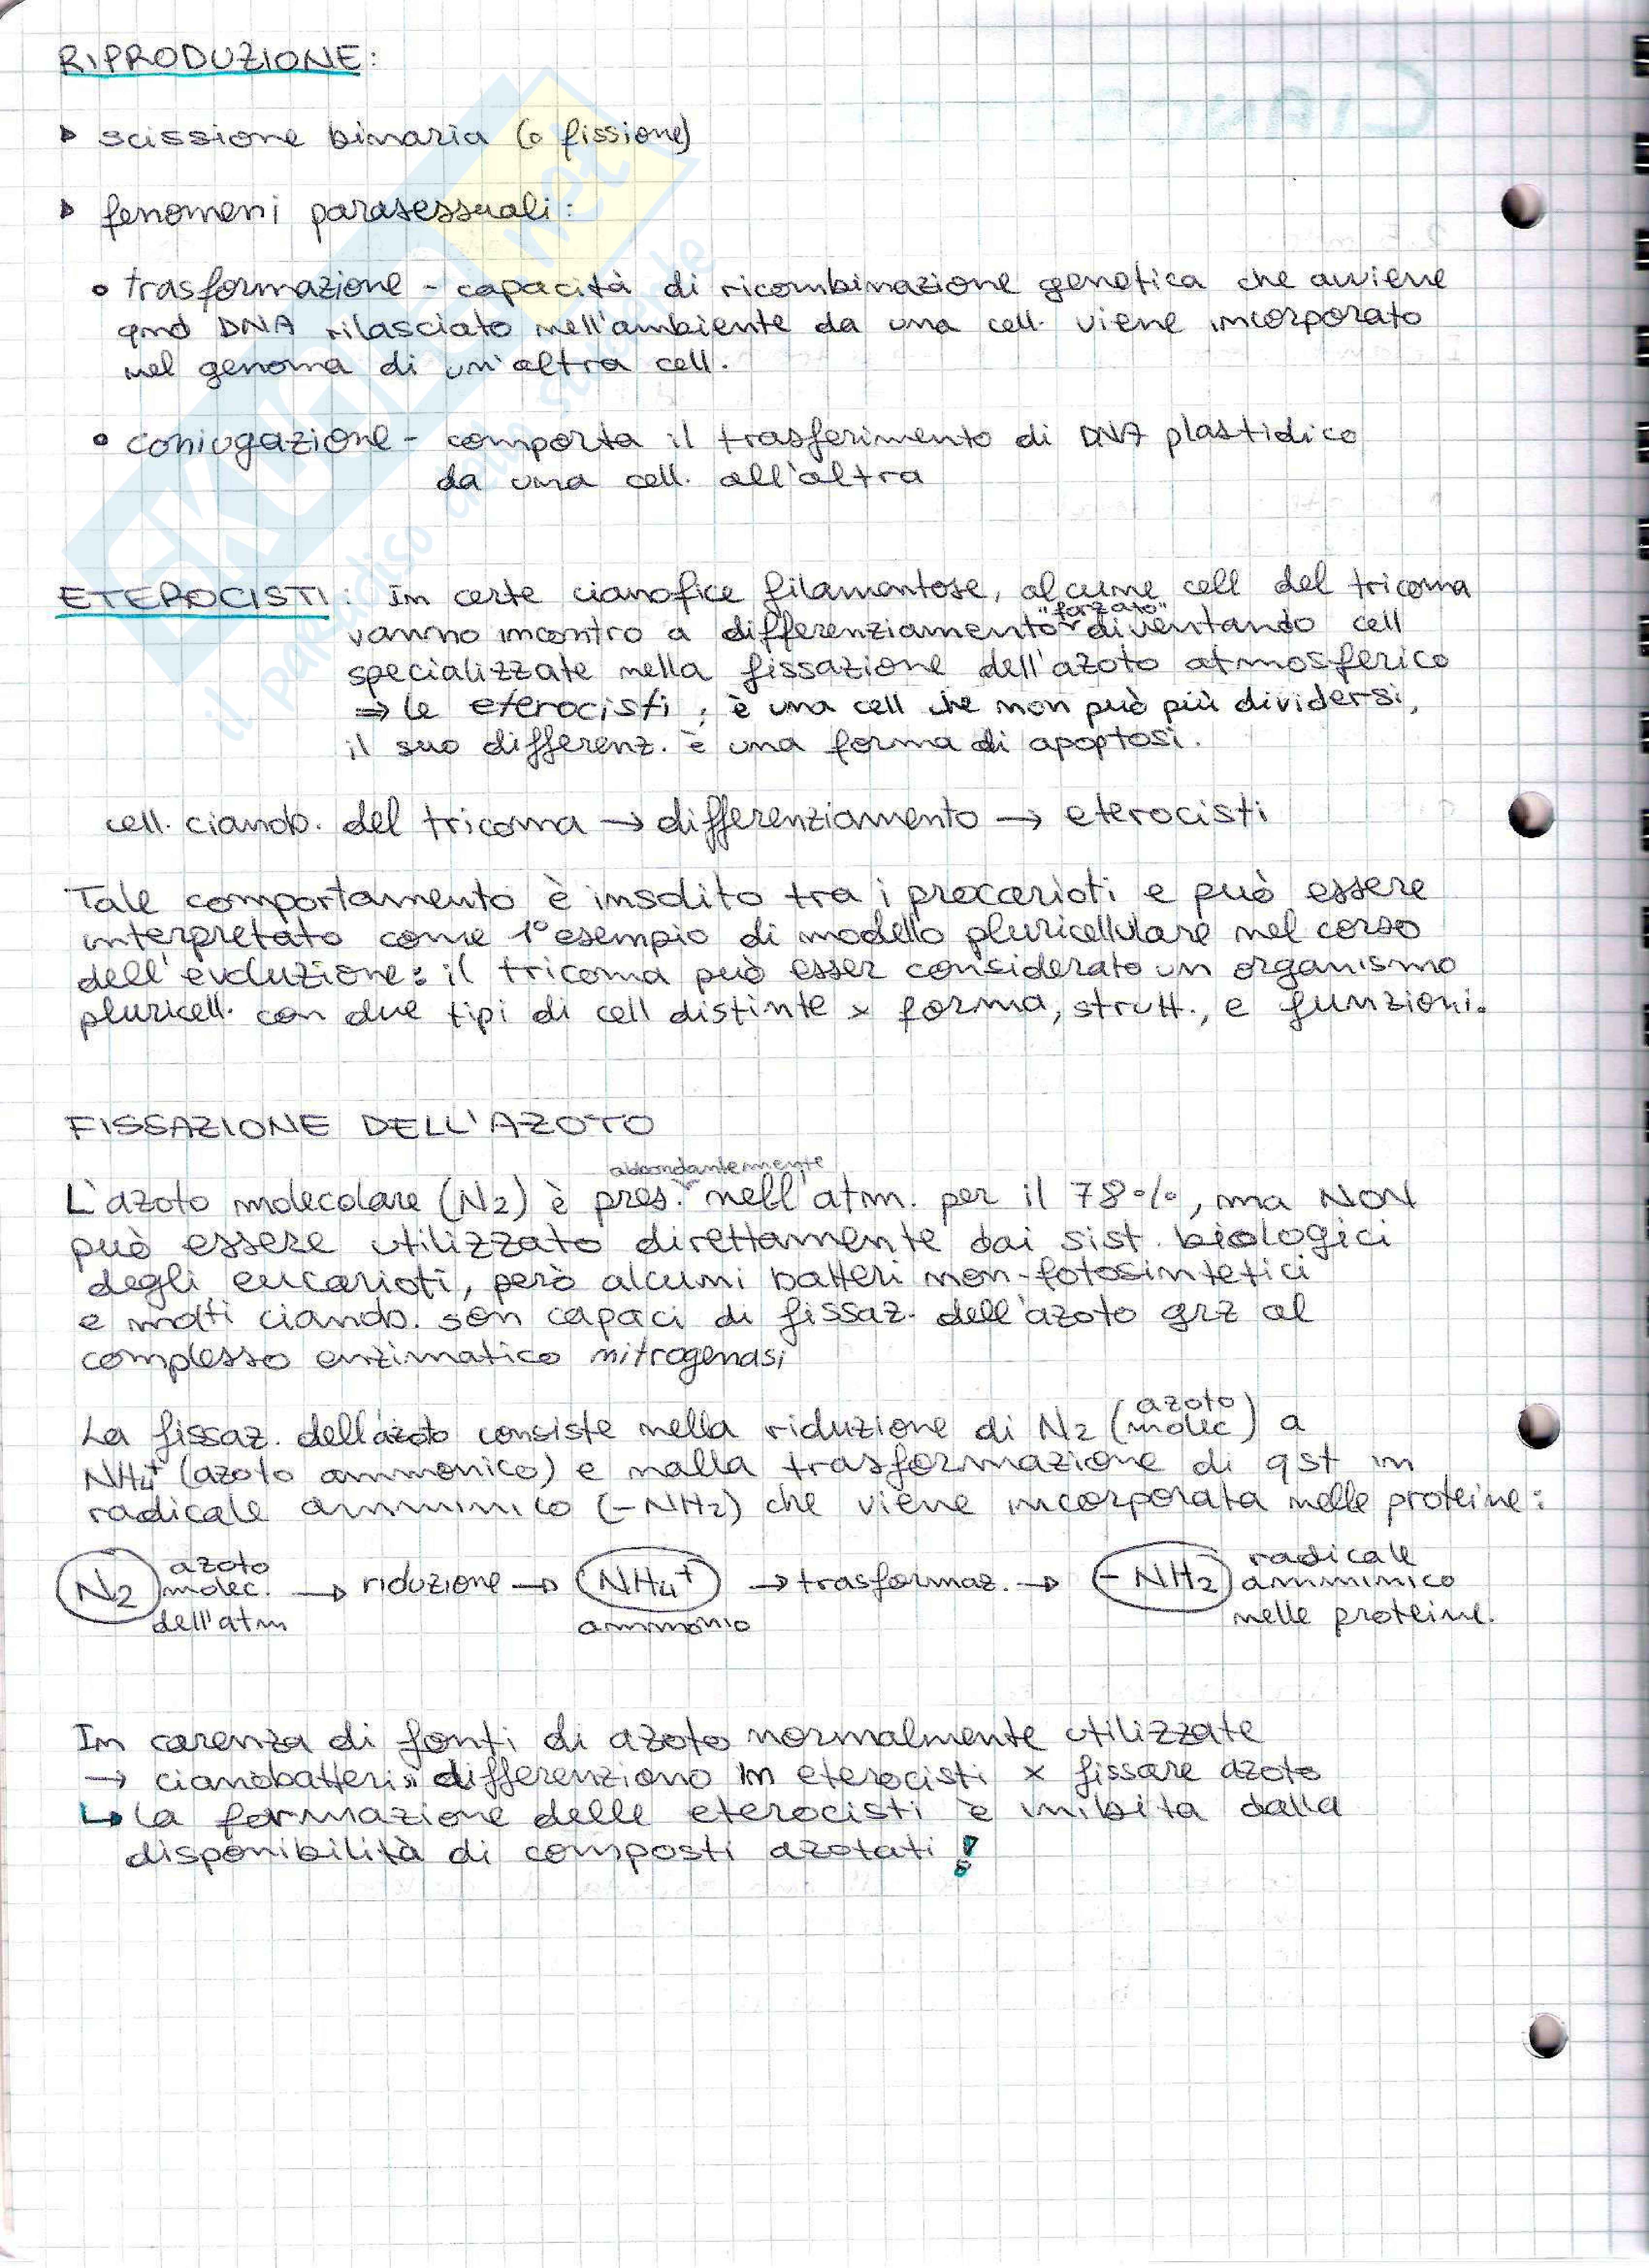 RIPRODUZIONE:
▸ scissione binaria (o fissione)
▸ fenomeni parasessuali:
• trasformazione - capacità di ricombinazione genetica che avviene
qnd DNA rilasciato nell'ambiente da una cell. viene incorporato
nel genoma di un'altra cell.
• coniugazione - comporta il trasferimento di DNA plastidico
da una cell. all'altra
ETEROCISTI: In certe cianofice filamentose, alcune cell del tricoma
vanno incontro a differenziamento "forzato" diventando cell
specializzate nella fissazione dell'azoto atmosferico
⇒ le eterocisti; è una cell che non può più dividersi,
il suo differenz. è una forma di apoptosi.
cell. cianob. del tricoma → differenziamento → eterocisti
Tale comportamento è insolito tra i procarioti e può essere
interpretato come 1° esempio di modello pluricellulare nel corso
dell'evoluzione: il tricoma può esser considerato un organismo
pluricell. con due tipi di cell distinte x forma, strutt., e funzioni.
FISSAZIONE DELL'AZOTO
L'azoto molecolare (N2) è pres. abbondantemente nell'atm. per il 78%, ma NON
può essere utilizzato direttamente dai sist. biologici
degli eucarioti, però alcuni batteri non-fotosintetici
e molti cianob. son capaci di fissaz. dell'azoto grz al
complesso enzimatico nitrogenasi
La fissaz. dell'azoto consiste nella riduzione di N2 (azoto molec) a
NH4+ (azoto ammonico) e nalla trasformazione di qst in
radicale amminico (-NH2) che viene incorporata nelle proteine:
N2 azoto molec. dell'atm → riduzione → NH4+ ammonio → trasformaz. → -NH2 radicale amminico nelle proteine.
In carenza di fonti di azoto normalmente utilizzate
→ cianobatteri differenziono in eterocisti x fissare azoto
↳ la formazione delle eterocisti è inibita dalla
disponibilità di composti azotati!
SKUOLA.net
il paradiso dello studente